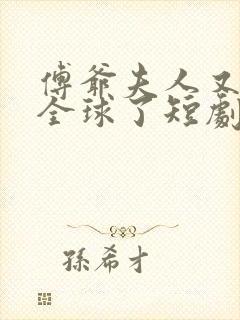 傅爺夫人又
全球了短劇
孫希才